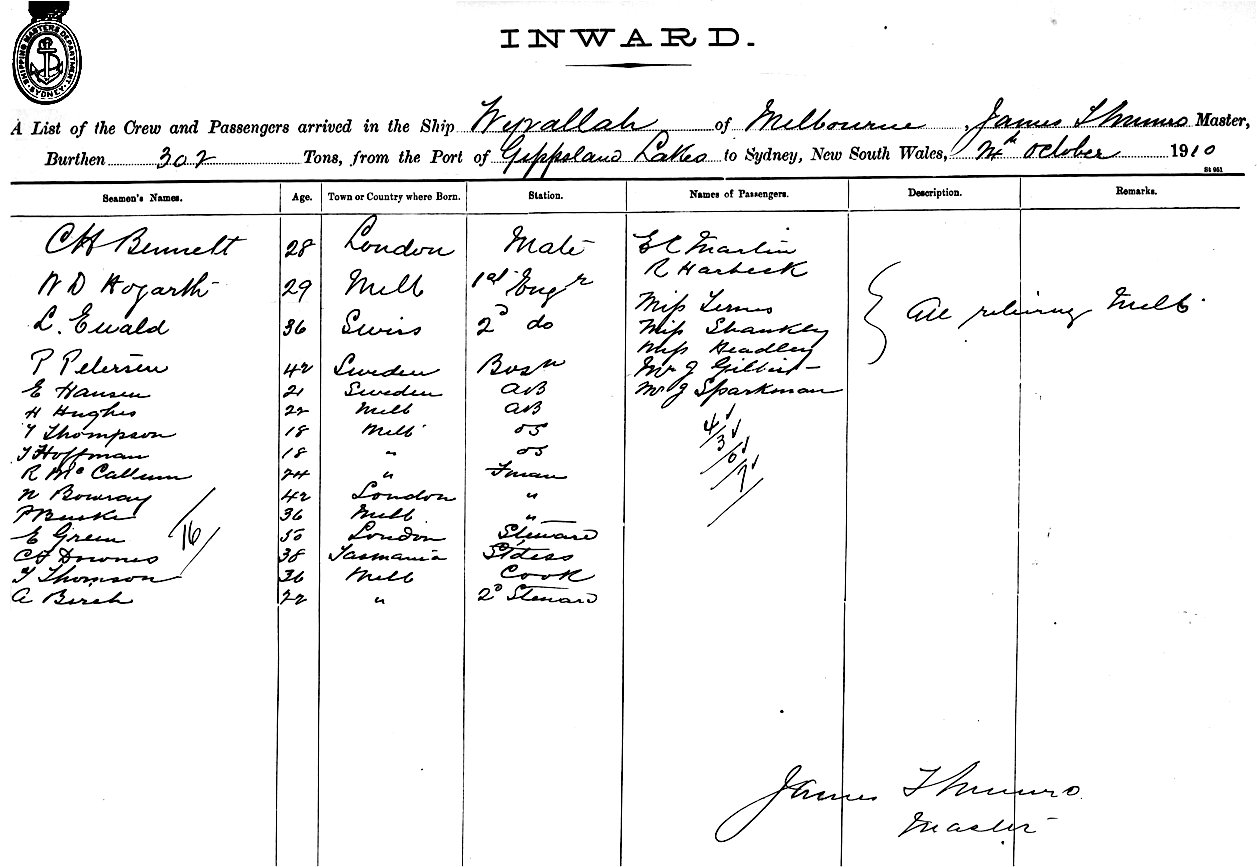 SHIPPING MASTERS DEPARTMENT. SYDNEY.
INWARD.
A List of the Crew and Passengers arrived in the Ship Wyrallah of Melbourne, James F Munro Master,
Burthen 302 Tons, from the Port of Gippsland Lakes to Sydney, New South Wales, October 1910
St 951
Seamen's Names. Age. Town or Country where Born. Station. Names of Passengers. Description. Remarks.
CH Bennett 28 London Mate E C Martin
R Harbeck
W D Hogarth 29 Melb 1st Engr
Miss
L. Ewald 36 Swiss 2d do Miss Shankley
Miss Headley
All Melb
P Petersen 42 Sweden Bosn Mr J
E Hansen 21 Sweden AB Mr J Sparkman
H Hughes 22 Melb AB
T Thompson 18 Melb OS
T Hoffman 18 " OS
R McCallum 24 " Fman
N Bowray 42 London "
P Burke 36 Melb "
E Green 50 London Steward
CH Downes 38 Tasmania Stdess
T Thomson 36 Melb Cook
A Birch 22 " 2d Steward
16
4/3/0/7/
James F Munro
Master